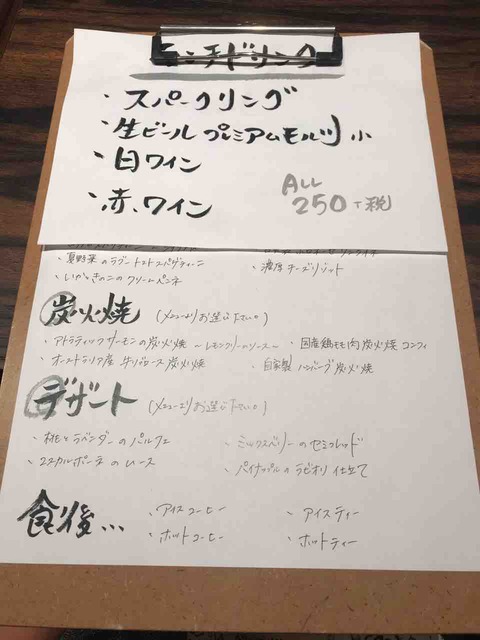 ランチドリンク
・スパークリング
・生ビール プレミアムモルツ 小
・白ワイン
・赤ワイン
ALL
250+税
・夏野菜のラグートマトスパゲティーニ
・濃厚チーズリゾット
・いかときのこのクリームペンネ
炭火焼 (メニューよりお選び下さい。)
・アトランティックサーモンの炭火焼 〜レモンクリームのソース〜
・国産鶏もも肉炭火焼コンフィ
・オーストラリア産 牛リブロース炭火焼
・自家製ハンバーグ炭火焼
デザート (メニューよりお選び下さい。)
・桃とラベンダーのパルフェ
・ミックスベリーのセミフレッド
・マスカルポーネのムース
・パイナップルのラビオリ仕立て
食後...
・アイスコーヒー
・アイスティー
・ホットコーヒー
・ホットティー